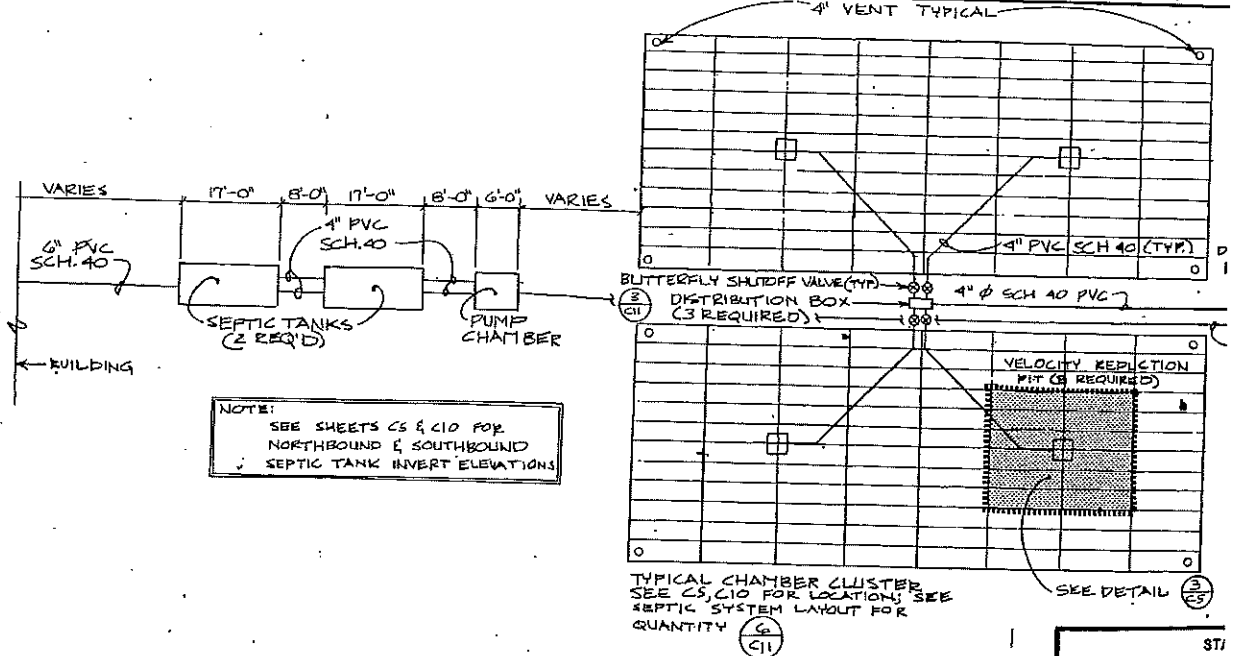 4" VENT TYPICAL
VARIES
17'-0"
8'-0"
17'-0"
8'-0"
6'-0"
VARIES
6" PVC
SCH. 40
4" PVC
SCH. 40
SEPTIC TANKS
(2 REQ'D)
PUMP
CHAMBER
BUILDING
4" PVC SCH 40 (TYP.)
BUTTERFLY SHUTOFF VALVE (TYP)
3
C11
DISTRIBUTION BOX
(3 REQUIRED)
4" Φ SCH 40 PVC
D
VELOCITY REDUCTION
PIT (8 REQUIRED)
NOTE:
SEE SHEETS C5 & C10 FOR
NORTHBOUND & SOUTHBOUND
SEPTIC TANK INVERT ELEVATIONS
TYPICAL CHAMBER CLUSTER
SEE C5, C10 FOR LOCATION; SEE
SEPTIC SYSTEM LAYOUT FOR
QUANTITY
6
C11
SEE DETAIL
3
C5
STA